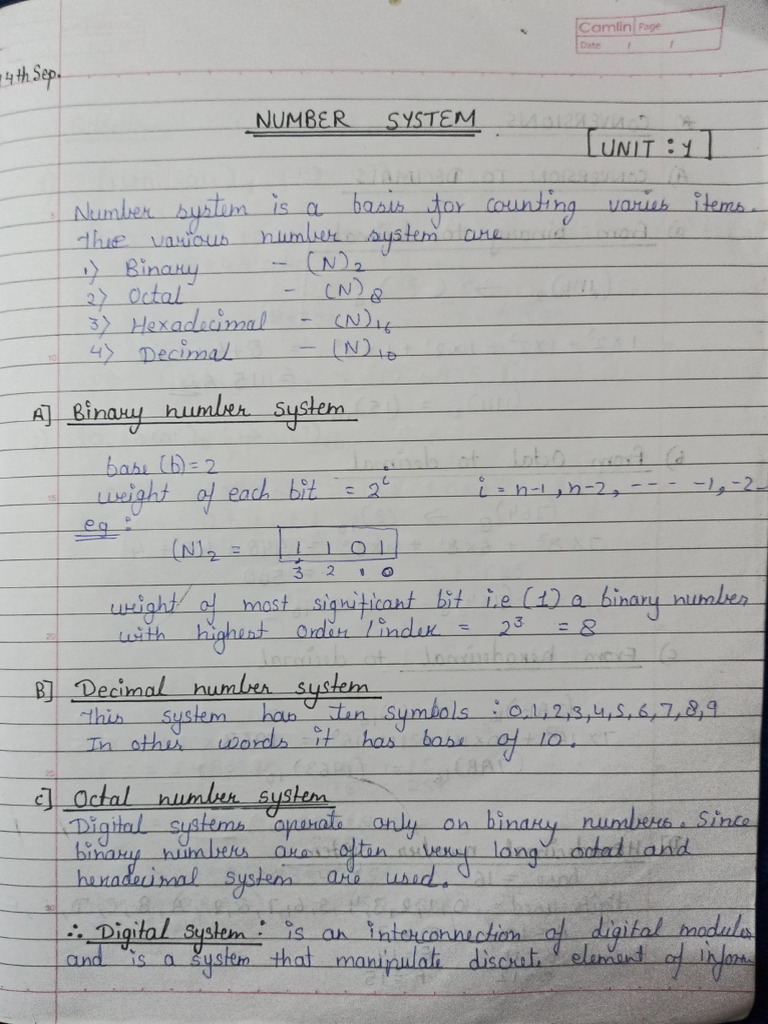 Camlin Page
Date / /
14th Sep.
NUMBER SYSTEM
[UNIT : 1]
Number system is a basis for counting varies items.
The various number system are
1) Binary - (N)2
2) Octal - (N)8
3) Hexadecimal - (N)16
4) Decimal - (N)10
A] Binary number system
base (b) = 2
weight of each bit = 2^i i = n-1, n-2, ---- -1, -2
eg :
(N)2 = 1 1 0 1
3 2 1 0
weight of most significant bit i.e (1) a binary number
with highest order / index = 2^3 = 8
B] Decimal number system
This system has ten symbols : 0,1,2,3,4,5,6,7,8,9
In other words it has base of 10.
C] Octal number system
Digital systems operate only on binary numbers. Since
binary numbers are often very long octal and
hexadecimal system are used.
∴ Digital system : is an interconnection of digital modules
and is a system that manipulate discrete element of inform